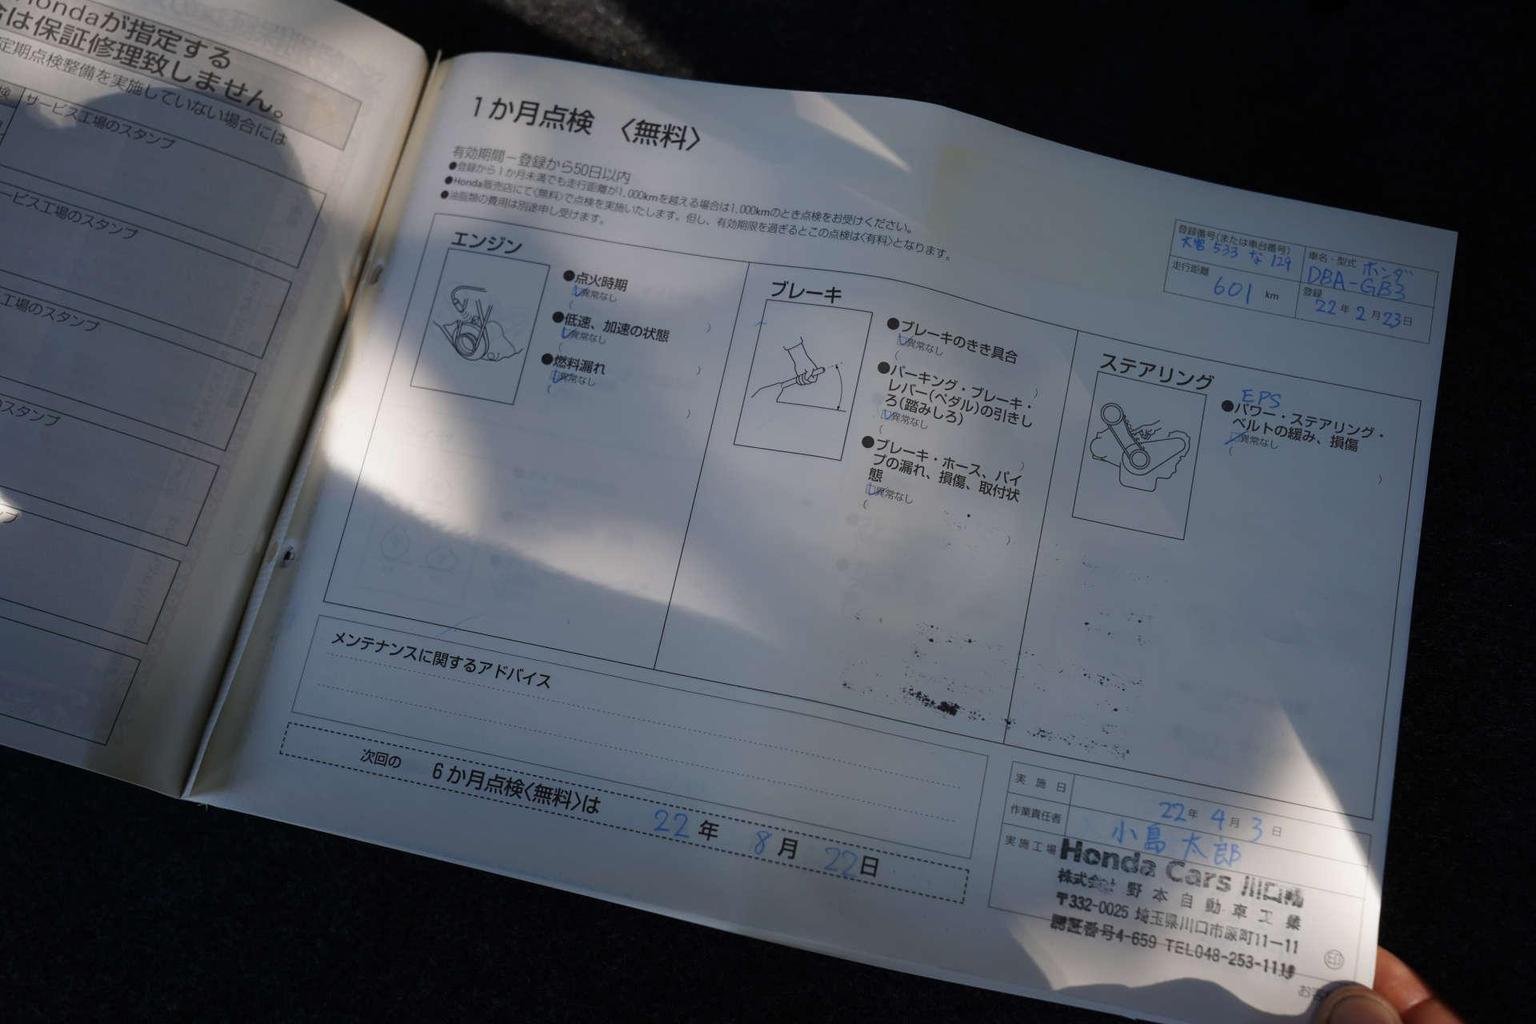 Hondaが指定する
は保証修理致しません。
定期点検整備を実施していない場合には
サービス工場のスタンプ
ービス工場のスタンプ
工場のスタンプ
のスタンプ
1か月点検 〈無料〉
有効期間－登録から50日以内
●登録から1か月未満でも走行距離が1,000kmを越える場合は1,000kmのとき点検をお受けください。
●Honda販売店にて〈無料〉で点検を実施いたします。但し、有効期限を過ぎるとこの点検は〈有料〉となります。
●油脂類の費用は別途申し受けます。
登録番号(または車台番号)
大宮 533 な 129
車名・型式 ホンダ
DBA-GB3
走行距離
601 km
登録
22年 2月23日
エンジン
●点火時期
異常なし
●低速、加速の状態
異常なし
●燃料漏れ
異常なし
ブレーキ
●ブレーキのきき具合
異常なし
●パーキング・ブレーキ・
レバー(ペダル)の引きし
ろ(踏みしろ)
異常なし
●ブレーキ・ホース、パイ
プの漏れ、損傷、取付状
態
異常なし
ステアリング
EPS
●パワー・ステアリング・
ベルトの緩み、損傷
異常なし
メンテナンスに関するアドバイス
次回の 6か月点検〈無料〉は 22年 8月 22日
実施日 22年 4月 3日
作業責任者 小島太郎
実施工場
Honda Cars 川口
株式会社 野本自動車工業
〒332-0025 埼玉県川口市原町11-11
認証番号4-659 TEL048-253-111
印
お